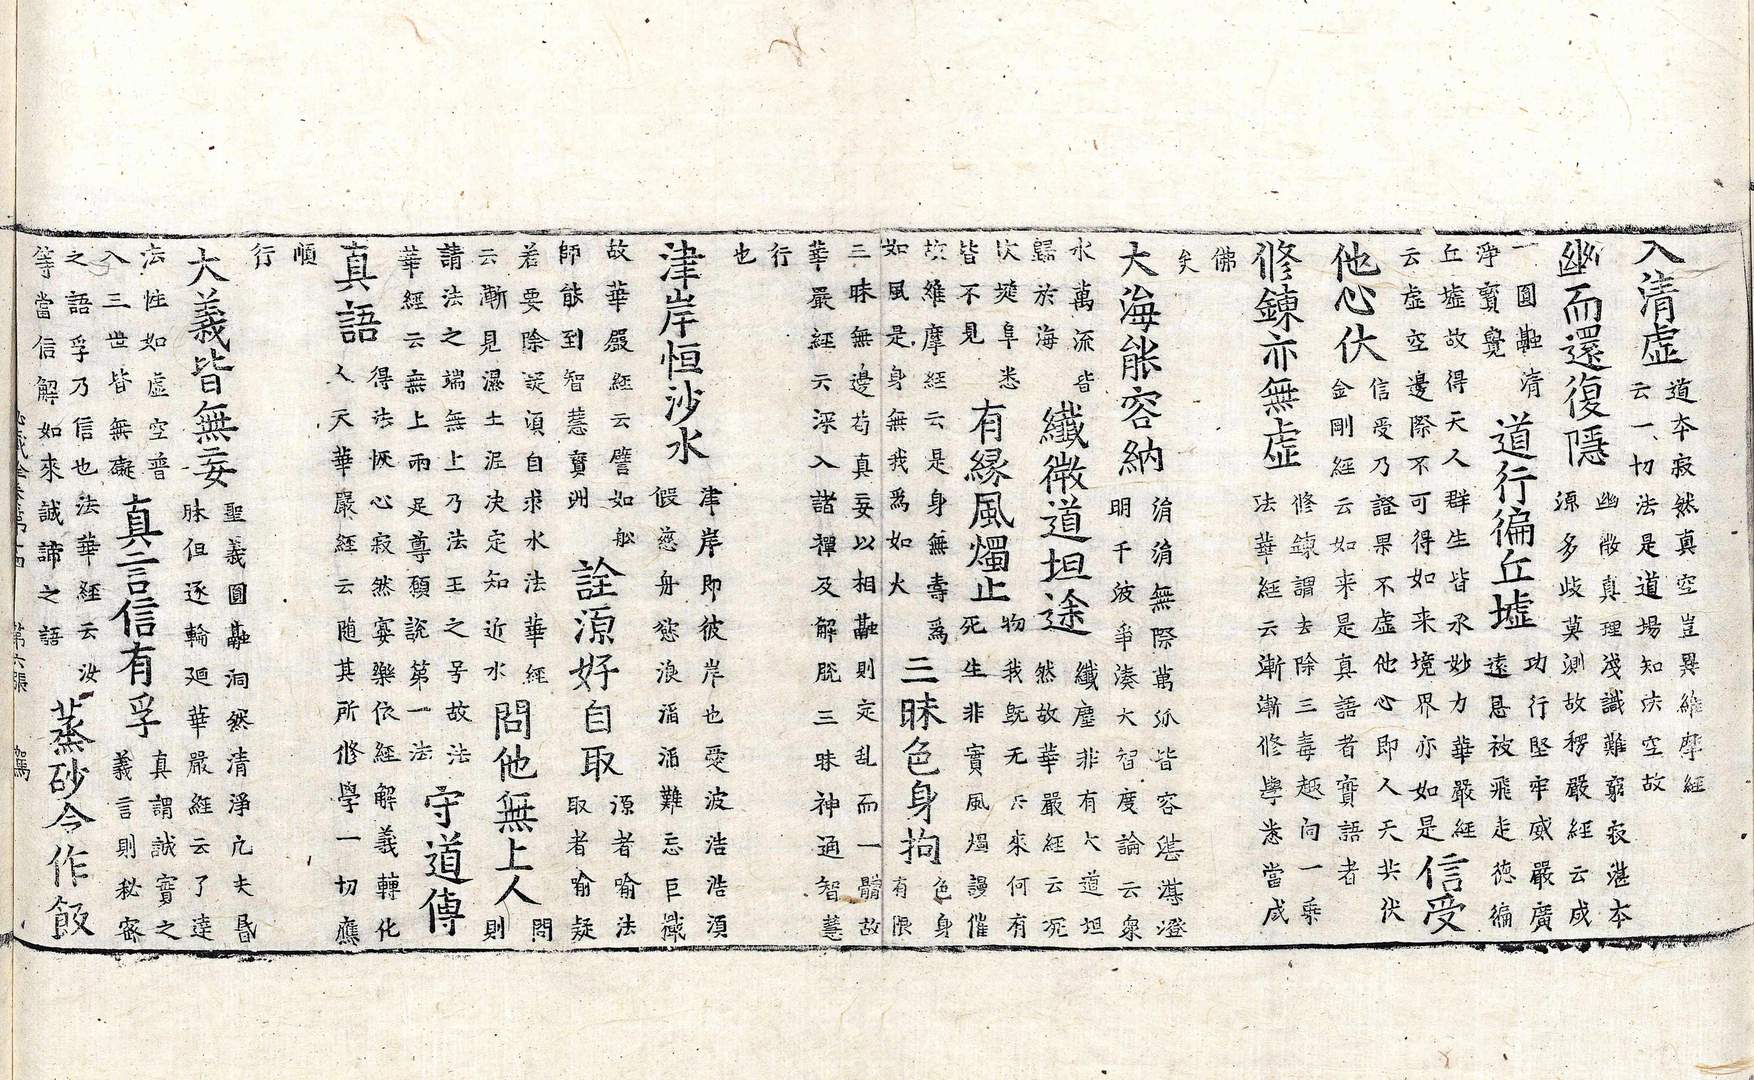 入清虛道本寂然真空豈異維摩經
云一切法是道場知法空故
幽而還復隱幽微真理淺識難窮寂湛本
源多歧莫測故楞嚴經云咸
一圓融清
淨寶覺
道行徧丘墟功行堅牢威嚴廣
遠恩被飛走德徧
丘墟故得天人群生皆承妙力華嚴經
云虛空邊際不可得如来境界亦如是
信受
他心伏信受乃證果不虛他心即人天共伏
金剛經云如来是真語者實語者
修鍊亦無虛修鍊謂去除三毒趣向一乘
法華經云漸漸修學悉當成
佛
矣
大海能容納涓涓無際萬派皆容湛湛澄
明千波爭湊大智度論云衆
水萬流皆
歸於海
纖微道坦途纖塵非有大道坦
然故華嚴經云死
坎堆阜悉
皆不見
有緣風燭止物我既无去來何有
死生非實風燭謾催
故維摩經云是身無壽為
如風是身無我為如火
三昧色身拘色身
有限
三昧無邊苟真妄以相融則定乱而一體故
華嚴經云深入諸禪及解脫三昧神通智慧
行
也
津岸恒沙水津岸即彼岸也愛波浩浩須
假慈舟慾浪滔滔難忘巨檝
故華嚴經云譬如舩
師能到智慧寶洲
詮源好自取源者喻法
取者喻疑
若要除疑須自求水法華經
云漸見濕土泥決定知近水
問他無上人問
則
請法之端無上乃法王之号故法
華經云無上兩足尊願說第一法
守道傳
真語得法恢心寂然宴樂依經解義轉化
人天華嚴經云随其所修學一切應
順
行
大義皆無妄聖義圓融洞然清淨凢夫昏
昧但逐輪廻華嚴經云了達
法性如虛空普
入三世皆無礙
真言信有孚真謂誠實之
義言則秘密
之語孚乃信也法華經云汝
等當信解如來誠諦之語
蒸砂今作飯
第六張 駕